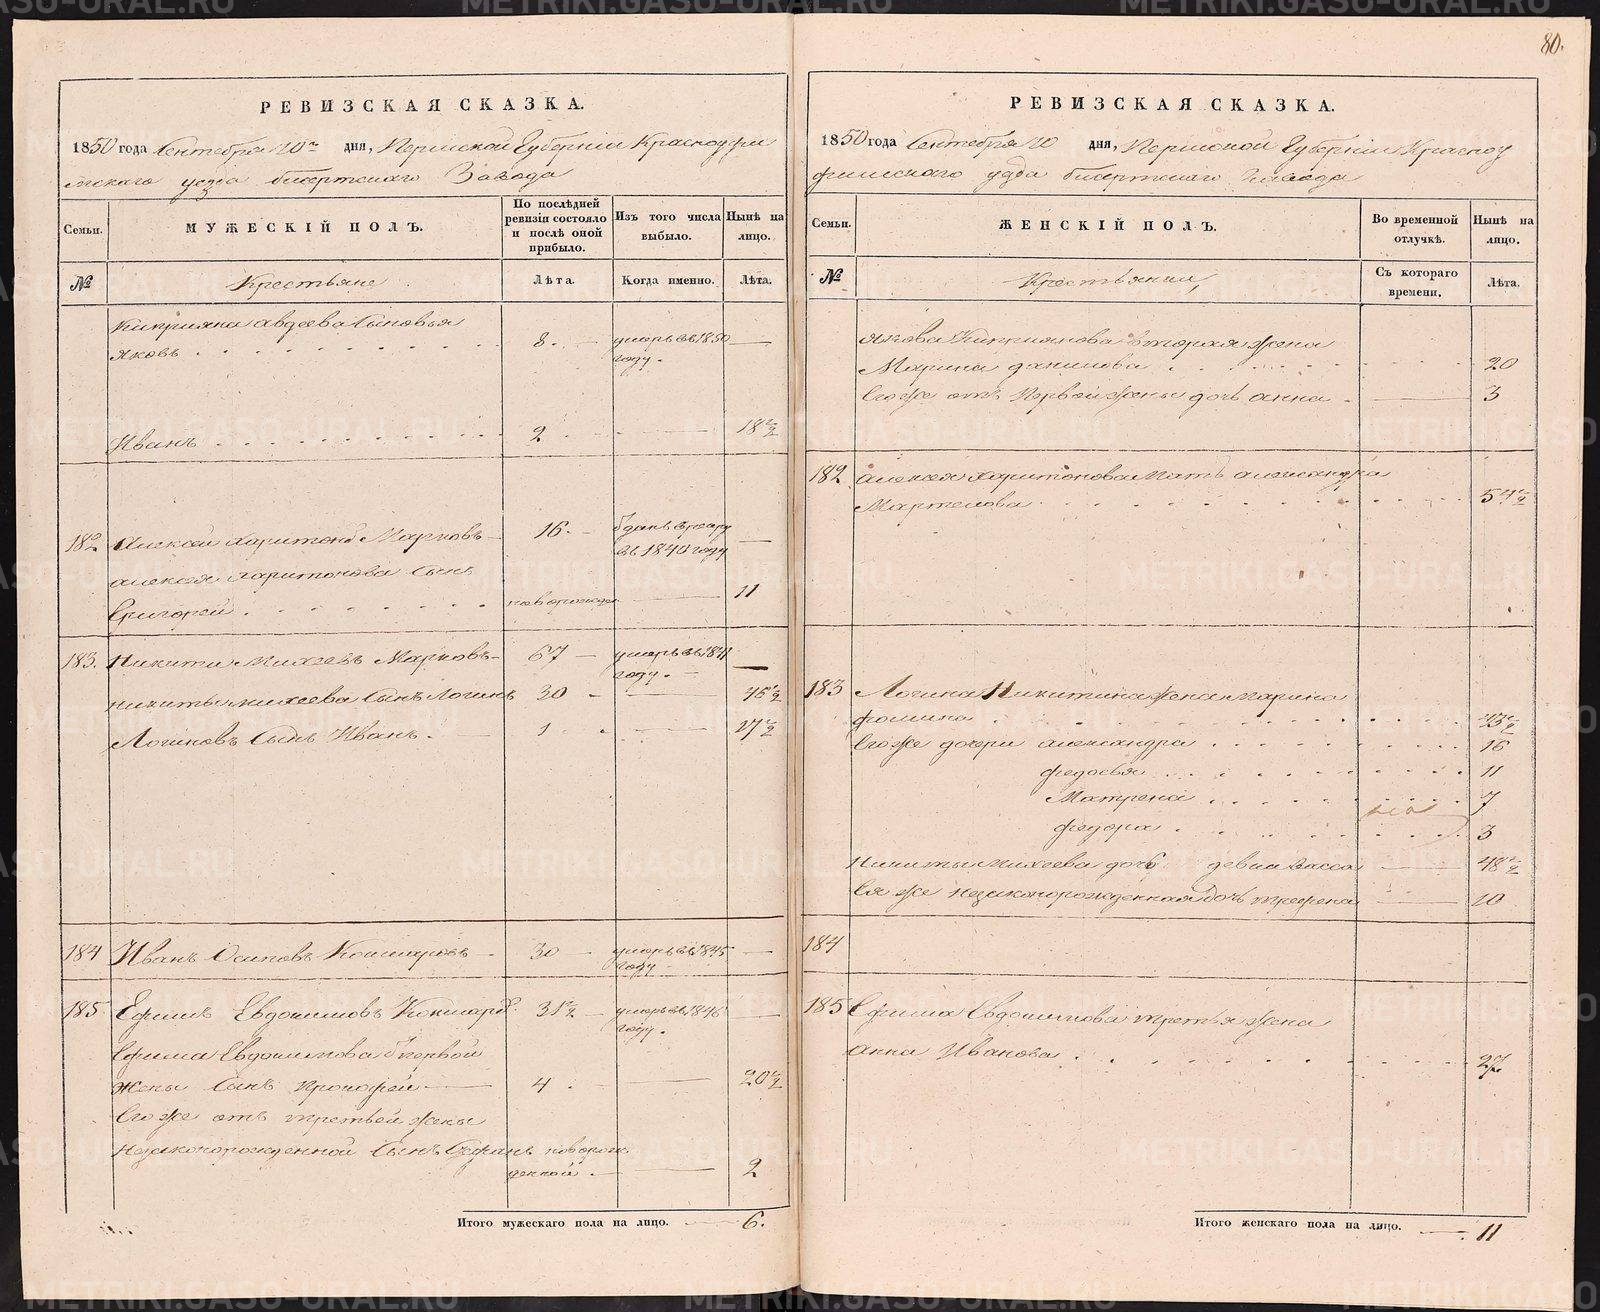 80.
РЕВИЗСКАЯ СКАЗКА.
1850 года Сентября 10го дня, Пермской Губерніи Красноуфи
мскаго уезда бисертскаго Завода
Семьи.
МУЖЕСКІЙ ПОЛЪ.
По послѣдней ревизіи состояло и послѣ оной прибыло.
Изъ того числа выбыло.
Нынѣ на лицо.
№
Крестьяне
Лѣта.
Когда именно.
Лѣта.
Киприяна авдеева Сыновья
Яковъ 8. умеръ въ 1850 году.
Иванъ 2 18 ½
182 Алексей Харитоновъ Марковъ 16. въ 1840 году
алексея Харитонова Сынъ
Григорей новорожден 11
183. Никита Михеевъ Марковъ 67 умеръ въ 1841 году.
никиты михеева Сынъ Логинъ 30 45 ½
Логиновъ Сынъ Иванъ 1 17 ½
184 Иванъ Осиповъ Кошкаровъ 30 умеръ въ 1845 году
185 Ефимъ Евдокимовъ 31 ½ умеръ въ 1846 году.
Ефима Евдокимова первой
жены Сынъ Прокофей 4. 20 ½
Его же отъ третьей жены
незаконорожденной Сынъ Стефанъ новорож
денной 2
Итого мужескаго пола на лицо. 6.
РЕВИЗСКАЯ СКАЗКА.
1850 года Сентября 10 дня, Пермской Губерніи Красноу
фимскаго уезда бисертскаго завода
Семьи.
ЖЕНСКІЙ ПОЛЪ.
Во временной отлучкѣ.
Нынѣ на лицо.
№
Крестьянки
Съ котораго времени.
Лѣта.
якова Киприянова вторая жена
Марина данилова 20
Его же отъ Первой жены дочь анна 3
182 алексея харитонова Мать александра
Мартелова 54 ½
183 Логина Никитина жена марина
фомина 43 ½
Его же дочери александра 16
федосья 11
Матрена 7
федора 3
Никиты Михеева дочь девка Васса 48 ½
Ея же незаконорожденная дочь 10
184
185 Ефима Евдокимова третья жена
анна Иванова 27
Итого женскаго пола на лицо. 11
METRIKI.GASO-URAL.RU